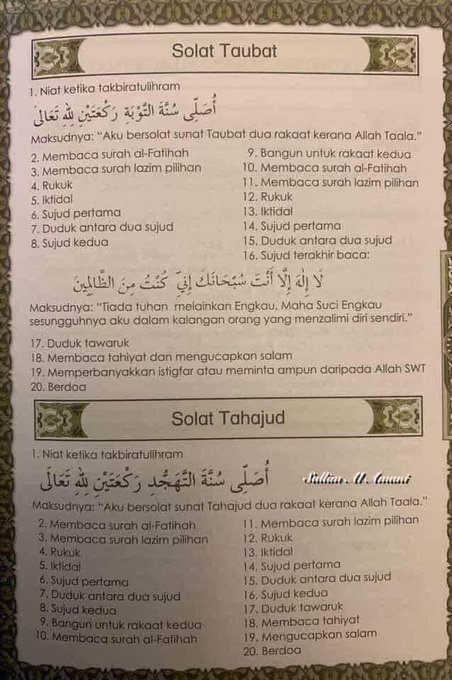 Solat Taubat
1. Niat ketika takbiratulihram
أُصَلِّى سُنَّةَ التَّوْبَةِ رَكْعَتَيْنِ لِلّٰهِ تَعَالَىٰ
Maksudnya: “Aku bersolat sunat Taubat dua rakaat kerana Allah Taala.”
2. Membaca surah al-Fatihah
3. Membaca surah lazim pilihan
4. Rukuk
5. Iktidal
6. Sujud pertama
7. Duduk antara dua sujud
8. Sujud kedua
9. Bangun untuk rakaat kedua
10. Membaca surah al-Fatihah
11. Membaca surah lazim pilihan
12. Rukuk
13. Iktidal
14. Sujud pertama
15. Duduk antara dua sujud
16. Sujud terakhir baca:
لَا إِلٰهَ إِلَّا أَنْتَ سُبْحَانَكَ إِنِّي كُنْتُ مِنَ الظَّالِمِينَ
Maksudnya: “Tiada tuhan melainkan Engkau, Maha Suci Engkau
sesungguhnya aku dalam kalangan orang yang menzalimi diri sendiri.”
17. Duduk tawaruk
18. Membaca tahiyat dan mengucapkan salam
19. Memperbanyakkan istigfar atau meminta ampun daripada Allah SWT
20. Berdoa
Solat Tahajud
1. Niat ketika takbiratulihram
أُصَلِّى سُنَّةَ التَّهَجُّدِ رَكْعَتَيْنِ لِلّٰهِ تَعَالَىٰ
Sultan Al Amani
Maksudnya: “Aku bersolat sunat Tahajud dua rakaat kerana Allah Taala.”
2. Membaca surah al-Fatihah
3. Membaca surah lazim pilihan
4. Rukuk
5. Iktidal
6. Sujud pertama
7. Duduk antara dua sujud
8. Sujud kedua
9. Bangun untuk rakaat kedua
10. Membaca surah al-Fatihah
11. Membaca surah lazim pilihan
12. Rukuk
13. Iktidal
14. Sujud pertama
15. Duduk antara dua sujud
16. Sujud kedua
17. Duduk tawaruk
18. Membaca tahiyat
19. Mengucapkan salam
20. Berdoa